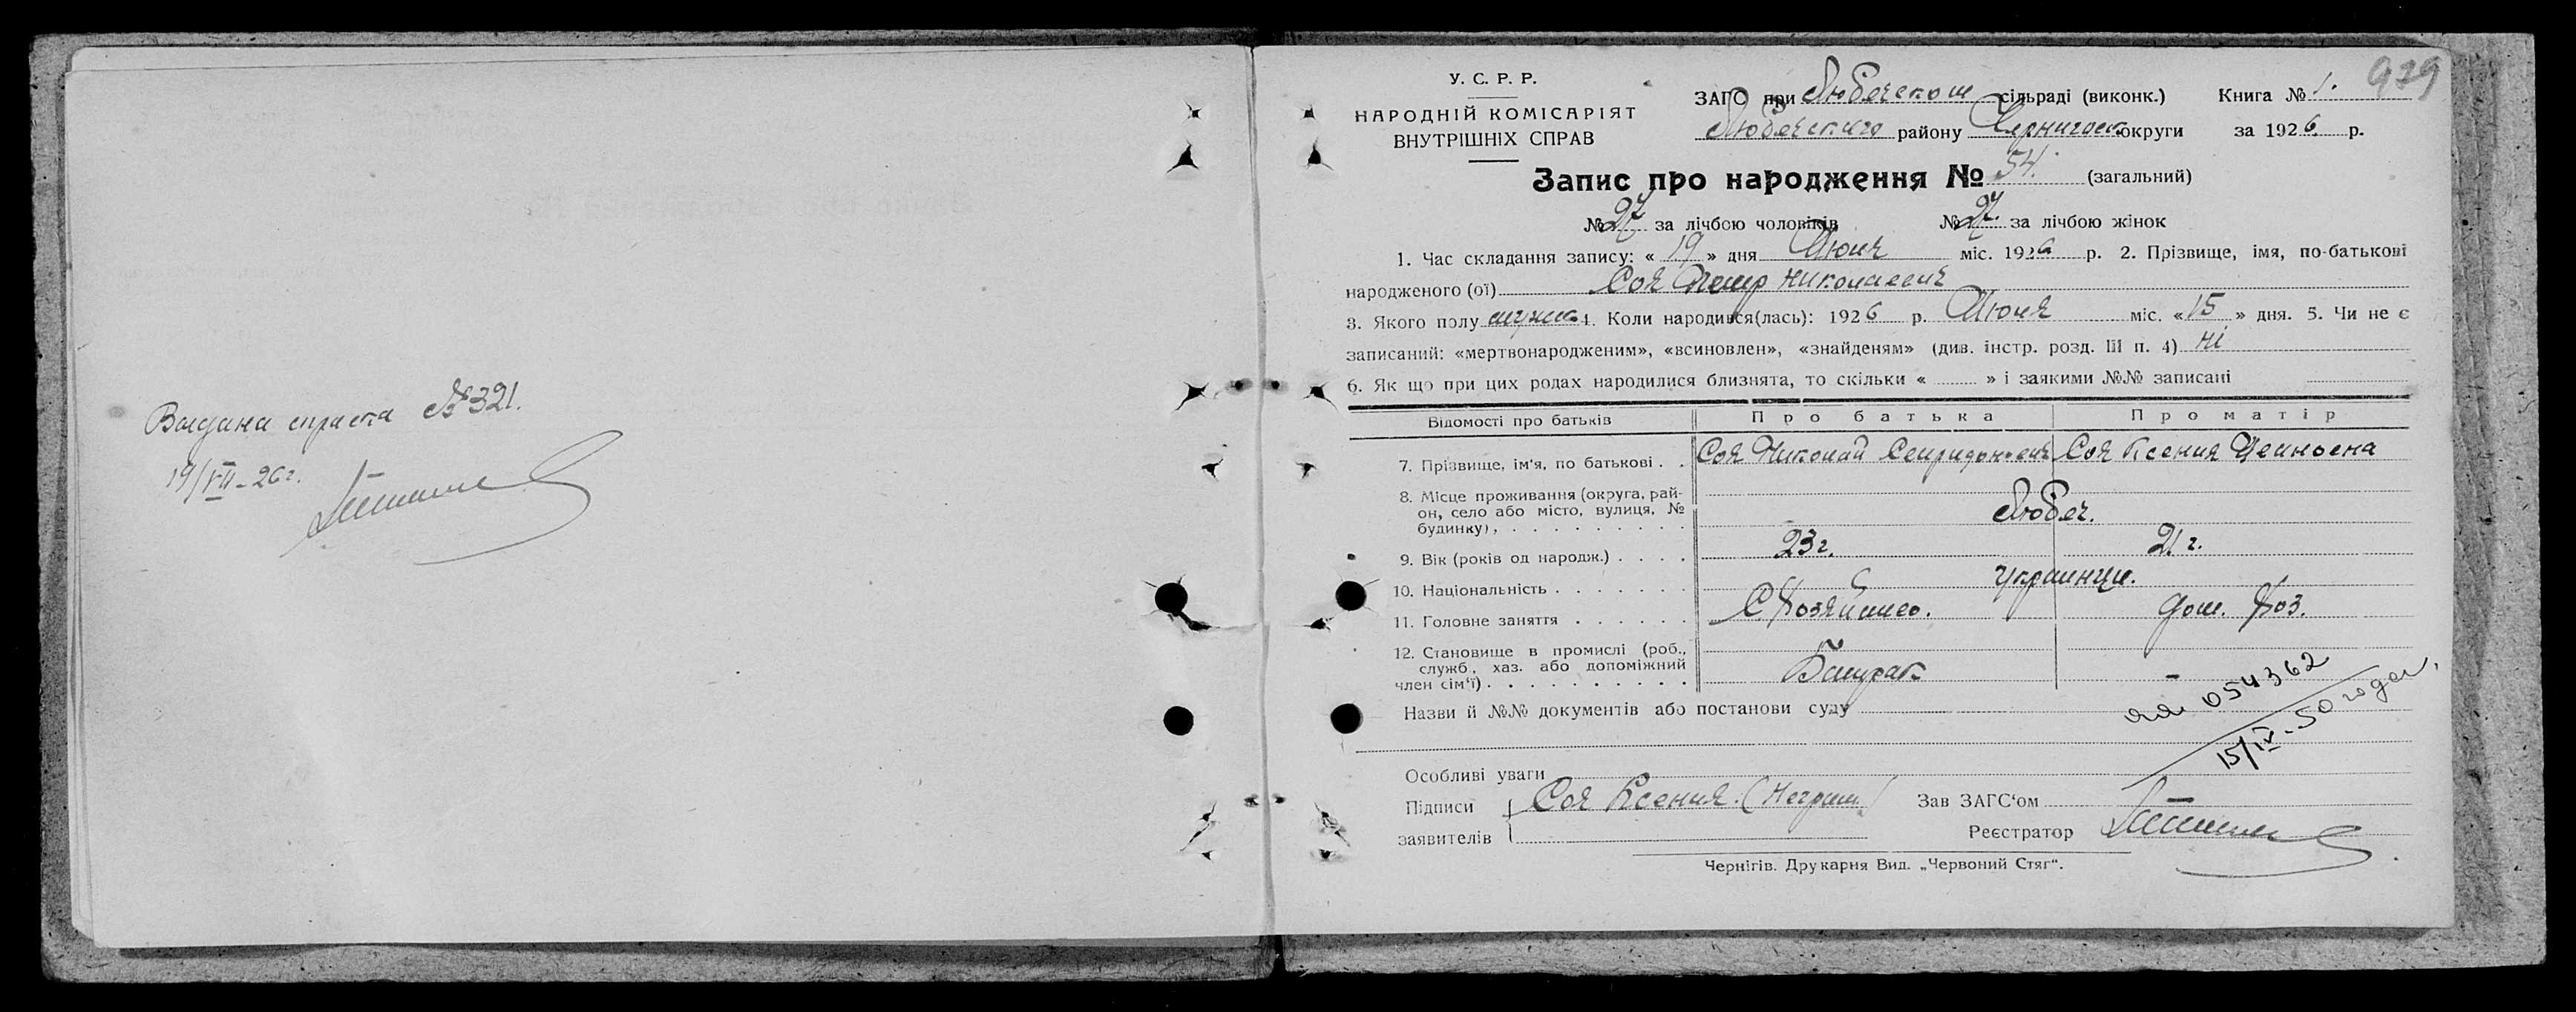 Выдана справка №321.
19/VII-26г.
929
У. С. Р. Р.
НАРОДНІЙ КОМІСАРІЯТ
ВНУТРІШНІХ СПРАВ
ЗАГС при Любечском сільраді (виконк.) Книга № 1.
Любечского району Черниговск. округи за 1926 р.
Запис про народження № 54. (загальний)
№ 27 за лічбою чоловіків № 27. за лічбою жінок
1. Час складання запису: « 19 » дня Июня міс. 1926 р. 2. Прізвище, імя, по-батькові
народженого (ої) Соя Петр Николаевич
3. Якого полу мужск. 4. Коли народився(лась): 1926 р. Июня міс. « 15 » дня. 5. Чи не є
записаний: «мертвонародженим», «всиновлен», «знайденям» (див. інстр. розд. III п. 4) ні
6. Як що при цих родах народилися близнята, то скільки « » і заякими №№ записані
Відомості про батьків Про батька Про матір
7. Прізвище, ім'я, по батькові . . Соя Николай Спиридонович Соя Ксения
8. Місце проживання (округа, рай-
он, село або місто, вулиця, №
будинку), . . . . . . . . . Любеч.
9. Вік (років од народж.) . . . . 23 г. 21 г.
10. Національність . . . . . . . Украинцы.
11. Головне заняття . . . . . . С. Хозяйство. дом. хоз.
12. Становище в промислі (роб.,
служб, хаз. або допоміжний
член сім'ї) . . . . . . . . . . Батрак -
Назви й №№ документів або постанови суду
054362
15/IV-50 года.
Особливі уваги
Підписи Соя Ксения. (Неграм.) Зав ЗАГС'ом
заявителів Реєстратор
Чернігів. Друкарня Вид. „Червоний Стяг".